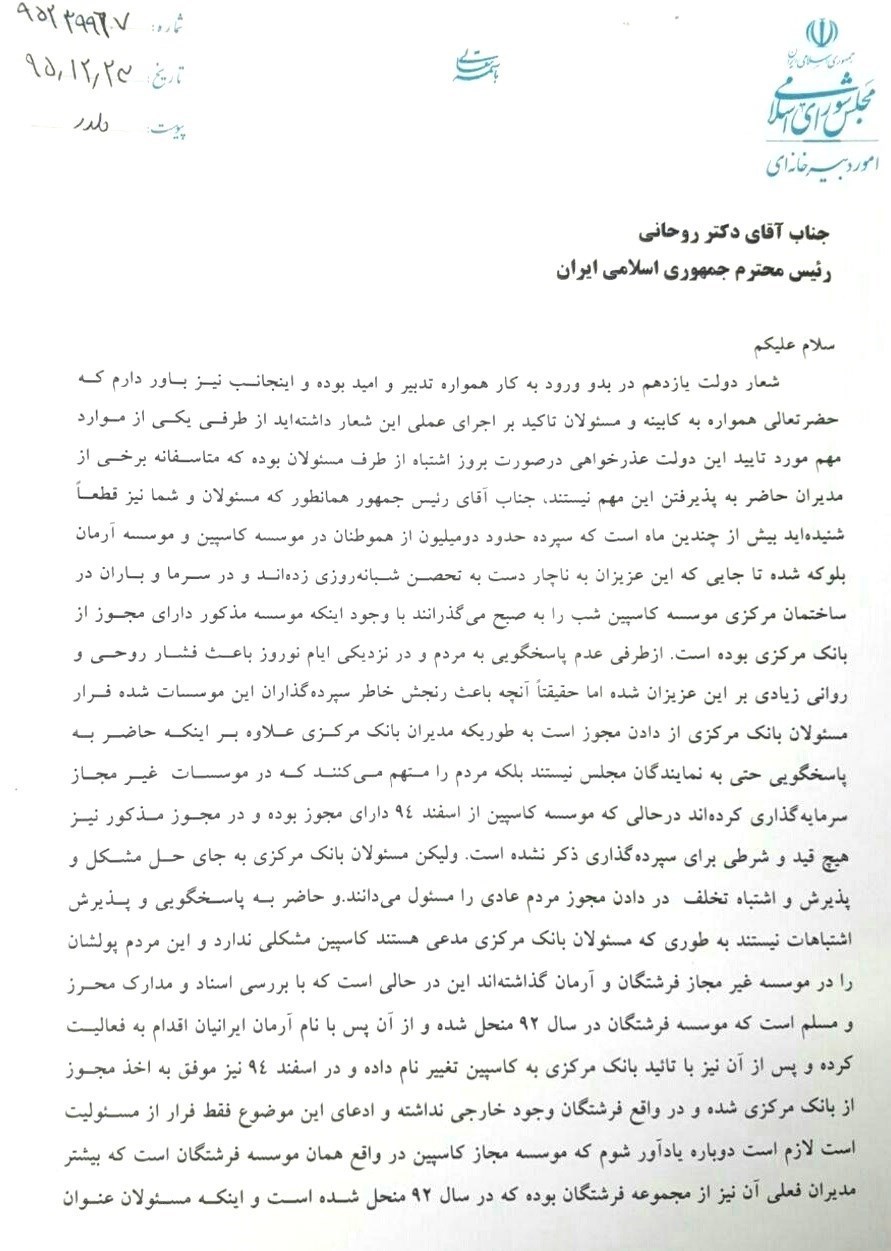 جمهوری اسلامی ایران
مجلس شورای اسلامی
امور دبیرخانه‌ای
باسمه تعالی
شماره:
تاریخ: ۹۵,۱۲,۲۳
پیوست: دلدر
جناب آقای دکتر روحانی
رئیس محترم جمهوری اسلامی ایران
سلام علیکم
شعار دولت یازدهم در بدو ورود به کار همواره تدبیر و امید بوده و اینجانب نیز باور دارم که
حضرتعالی همواره به کابینه و مسئولان تاکید بر اجرای عملی این شعار داشته‌اید از طرفی یکی از موارد
مهم مورد تایید این دولت عذرخواهی درصورت بروز اشتباه از طرف مسئولان بوده که متاسفانه برخی از
مدیران حاضر به پذیرفتن این مهم نیستند، جناب آقای رئیس جمهور همانطور که مسئولان و شما نیز قطعاً
شنیده‌اید بیش از چندین ماه است که سپرده حدود دومیلیون از هموطنان در موسسه کاسپین و موسسه آرمان
بلوکه شده تا جایی که این عزیزان به ناچار دست به تحصن شبانه‌روزی زده‌اند و در سرما و باران در
ساختمان مرکزی موسسه کاسپین شب را به صبح می‌گذرانند با وجود اینکه موسسه مذکور دارای مجوز از
بانک مرکزی بوده است. ازطرفی عدم پاسخگویی به مردم و در نزدیکی ایام نوروز باعث فشار روحی و
روانی زیادی بر این عزیزان شده اما حقیقتاً آنچه باعث رنجش خاطر سپرده‌گذاران این موسسات شده فرار
مسئولان بانک مرکزی از دادن مجوز است به طوریکه مدیران بانک مرکزی علاوه بر اینکه حاضر به
پاسخگویی حتی به نمایندگان مجلس نیستند بلکه مردم را متهم می‌کنند که در موسسات غیر مجاز
سرمایه‌گذاری کرده‌اند درحالی که موسسه کاسپین از اسفند ۹٤ دارای مجوز بوده و در مجوز مذکور نیز
هیچ قید و شرطی برای سپرده‌گذاری ذکر نشده است. ولیکن مسئولان بانک مرکزی به جای حل مشکل و
پذیرش و اشتباه تخلف در دادن مجوز مردم عادی را مسئول می‌دانند.و حاضر به پاسخگویی و پذیرش
اشتباهات نیستند به طوری که مسئولان بانک مرکزی مدعی هستند کاسپین مشکلی ندارد و این مردم پولشان
را در موسسه غیر مجاز فرشتگان و آرمان گذاشته‌اند این در حالی است که با بررسی اسناد و مدارک محرز
و مسلم است که موسسه فرشتگان در سال ۹۲ منحل شده و از آن پس با نام آرمان ایرانیان اقدام به فعالیت
کرده و پس از آن نیز با تائید بانک مرکزی به کاسپین تغییر نام داده و در اسفند ۹٤ نیز موفق به اخذ مجوز
از بانک مرکزی شده و در واقع فرشتگان وجود خارجی نداشته و ادعای این موضوع فقط فرار از مسئولیت
است لازم است دوباره یادآور شوم که موسسه مجاز کاسپین در واقع همان موسسه فرشتگان است که بیشتر
مدیران فعلی آن نیز از مجموعه فرشتگان بوده که در سال ۹۲ منحل شده است و اینکه مسئولان عنوان